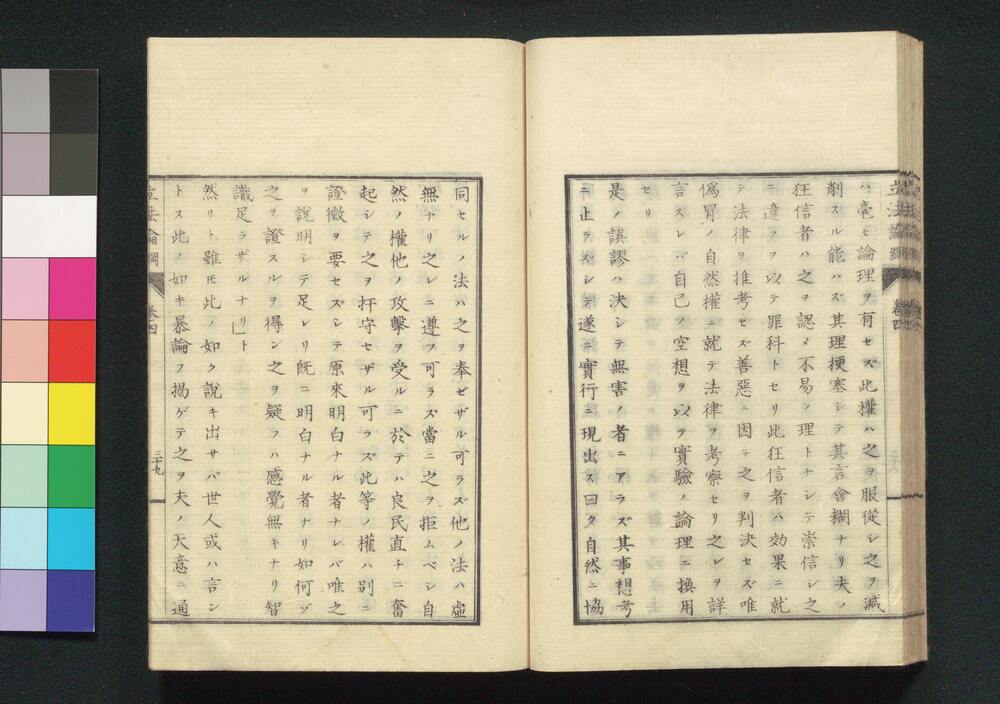 立法論綱
卷四
ハ毫モ論理ヲ有セズ此權ハ之ヲ服從シ之ヲ減
削スル能ハズ其理梗塞シテ其言含糊ナリ夫ノ
狂信者ハ之ヲ認メ不易ノ理トナシテ崇信シ之
ニ違フヲ以テ罪科トセリ此狂信者ハ効果ニ就
テ法律ヲ推考セズ善惡ニ因テ之ヲ判決セズ唯
僞冒ノ自然權ニ就テ法律ヲ考察セリ之レヲ詳
言スレバ自己ノ空想ヲ以テ實驗ノ論理ニ換用
セリ
是ノ誤謬ハ決シテ無害ノ者ニアラズ其事想考
ニ止ラズシテ遂ニ實行ニ現出ス曰ク自然ニ協
同セルノ法ハ之ヲ奉ゼザル可ラズ他ノ法ハ虛
無ナリ之レニ遵フ可ラズ當ニ之ヲ拒ムベシ自
然ノ權他ノ攻擊ヲ受ルニ於テハ良民直チニ奮
起シテ之ヲ扞守セザル可ラズ此等ノ權ハ別ニ
證徵ヲ要セズシテ原來明白ナル者ナレバ唯之
ヲ說明シテ足レリ旣ニ明白ナル者ナリ如何ゾ
之ヲ證スルヲ得ン之ヲ疑フハ感覺無キナリ智
識足ラザルナリ」ト
然リト雖モ此ノ如ク說キ出サバ世人或ハ言ン
トス此ノ如キ暴論フ揭ゲテ之ヲ夫ノ天意ニ通
立法論綱
卷四
三十九